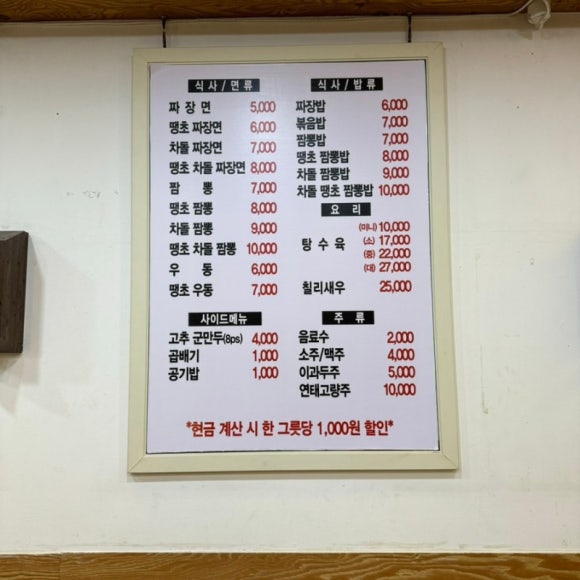 식사/면류
짜장면 5,000
땡초 짜장면 6,000
차돌 짜장면 7,000
땡초 차돌 짜장면 8,000
짬 뽕 7,000
땡초 짬뽕 8,000
차돌 짬뽕 9,000
땡초 차돌 짬뽕 10,000
우 동 6,000
땡초 우동 7,000
사이드메뉴
고추 군만두(8ps) 4,000
곱배기 1,000
공기밥 1,000
식사/밥류
짜장밥 6,000
볶음밥 7,000
짬뽕밥 7,000
땡초 짬뽕밥 8,000
차돌 짬뽕밥 9,000
차돌 땡초 짬뽕밥 10,000
요 리
(미니) 10,000
탕수육 (소) 17,000
(중) 22,000
(대) 27,000
칠리새우 25,000
주 류
음료수 2,000
소주/맥주 4,000
이과두주 5,000
연태고량주 10,000
*현금 계산 시 한 그릇당 1,000원 할인*